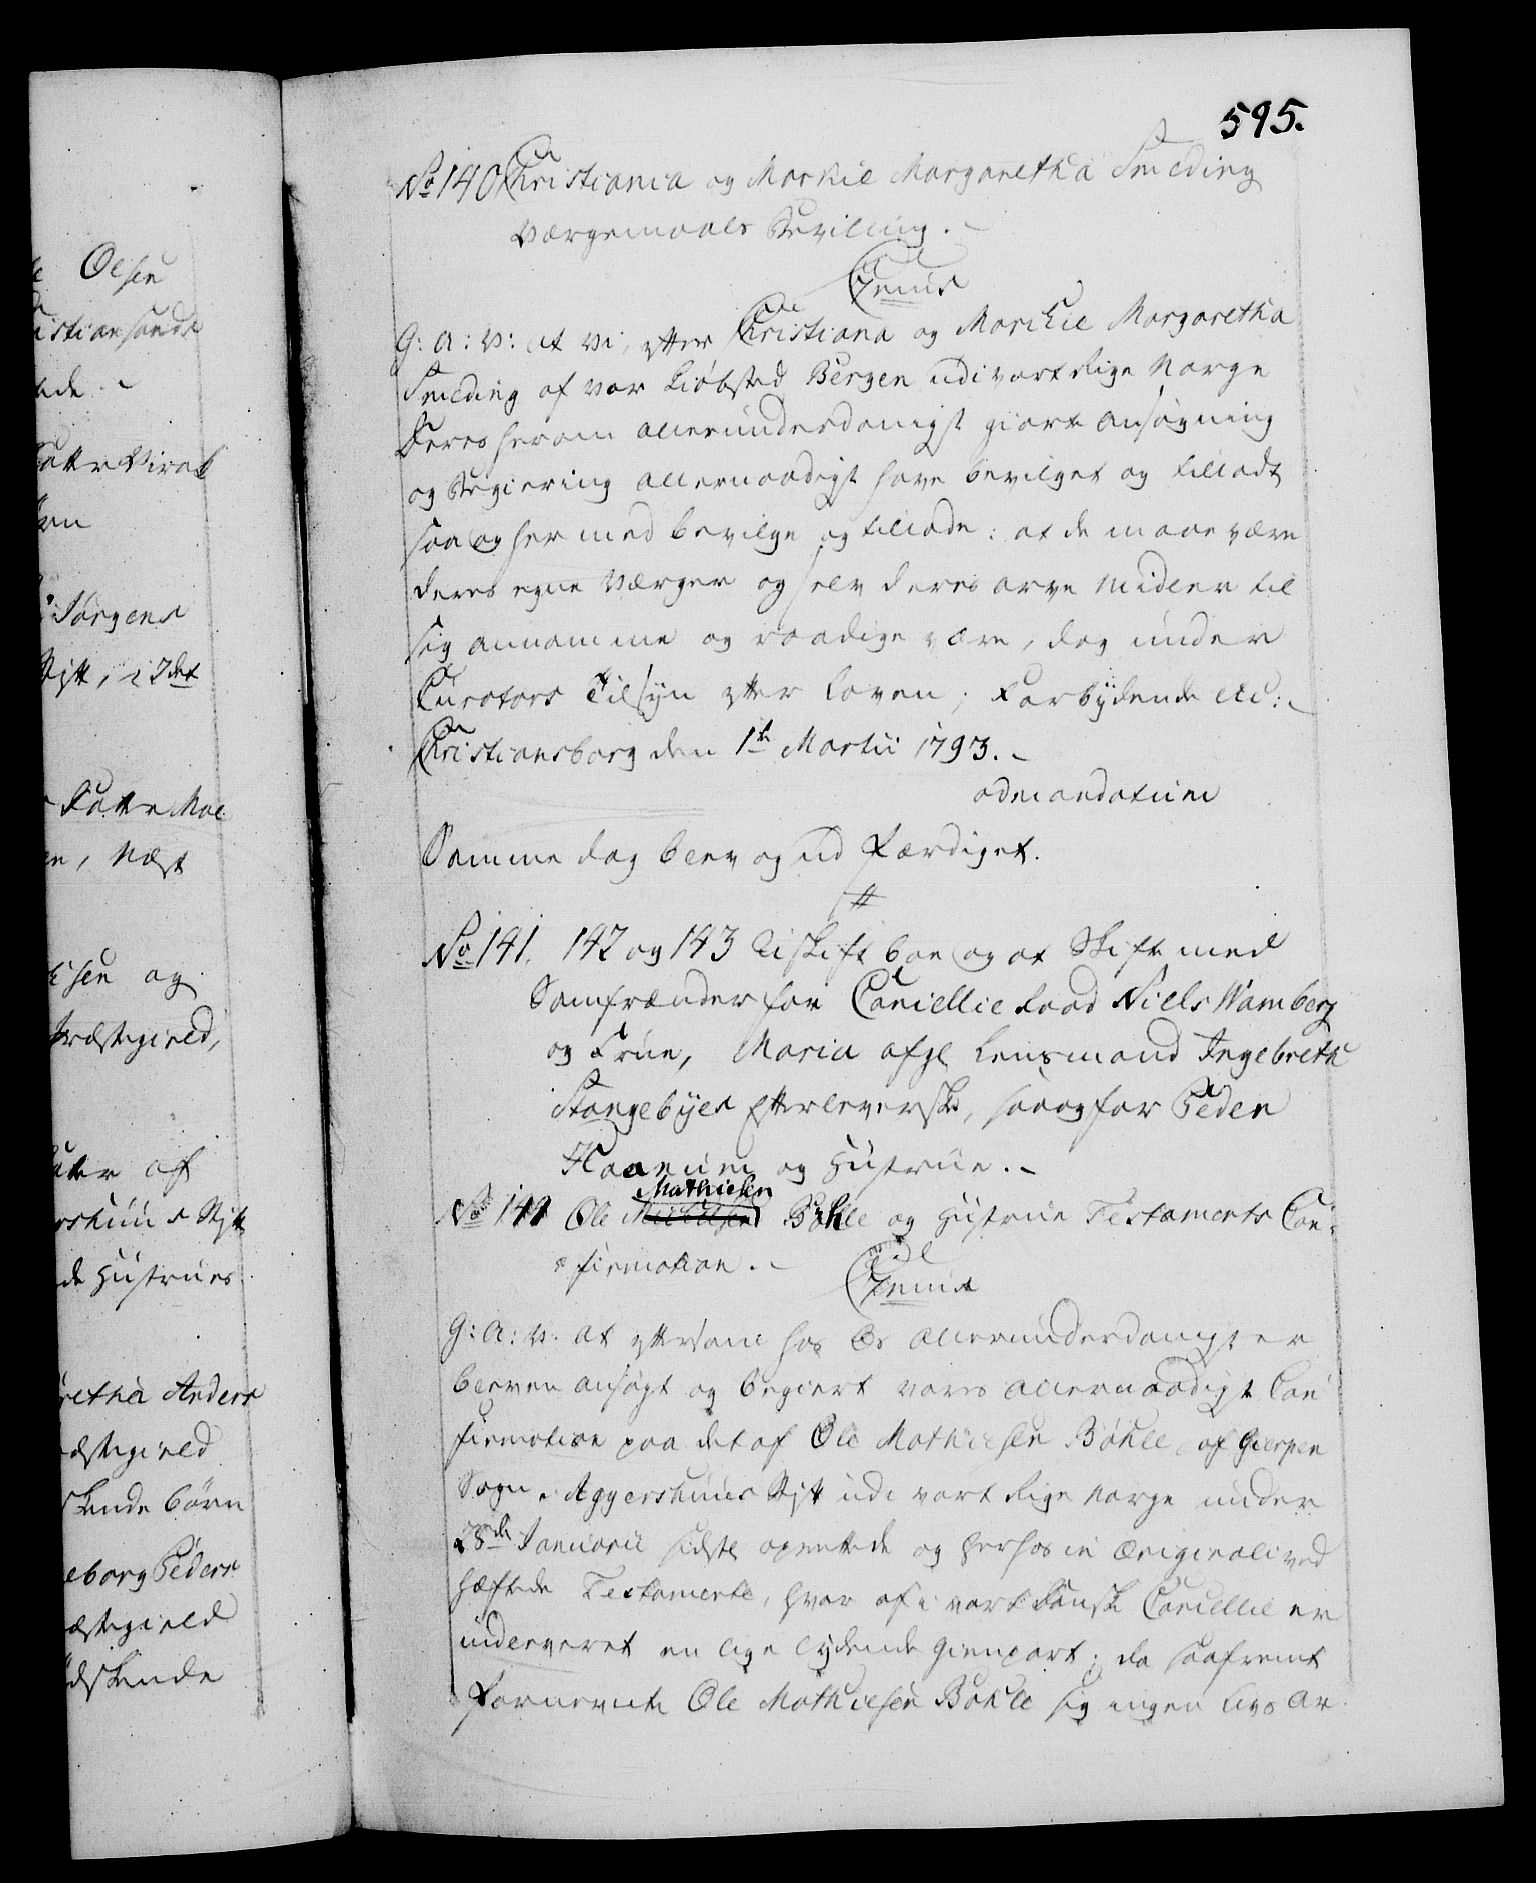 595.
No 140 Christiania og Markie Margaretha Smeding
Værgemaals Bevilling.
C 7nus
G: A: V: at Vi, efter Christiana og Marikie Margaretha
Smeding af vor Kiøbsted Bergen udi vort Rige Norge
deres herom allerunderdanigst giorte Ansøgning
og Begiering allernaadigst have bevilget og tilladt
saa og hermed bevilge og tillade: at de maae være
deres egne Værger og selv deres arve Midler til
sig annamme og raadige være, dog under
Curators Tilsyn efter Loven, Forbydende etc:
Christiansborg den 1te Martii 1793.
ad mandatum
Samme dag blev og ud færdiget.
No 141. 142 og 143 Uskift boe og at Skifte med
Samfrænder for Cancellie Raad Niels Wamberg
og Frue, Maria afgl Lensmand Ingebreth
Stangebyes Efterleverske, saa og for Peder
Haanum og Hustrue.
No 144 Ole Mathiesen Bøhle og Hustrue Testaments Con-
firmation.
C 7mus
G: A: V. at eftersom hos Os allerunderdanigst er
bleven ansøgt og begiert vores allernaadigst Con
firmation paa det af Ole Mathiesen Bøhle, af Gierpen
Sogn i Aggershuus Stift udi vort Rige Norge under
28de Januarii sidstl oprettede og herhos in Originali ved
hæftede Testamente, hvor af i vort Danske Cancellie er
indleveret en lige lydende Gienpart; da saafremt
Fornevnte Ole Mathiesen Bøhle sig ingen Livs Ar
Olsen
istiansands
ede
datter Virak
Jørgens
Stift, i 7det
datter Moe
en, Næst
elsen og
Præstegield,
datter af
ershuus Stift
de Hustrues
retha Anders
ræstegield
skende børn
eborg Peders
ræstegield
dskende